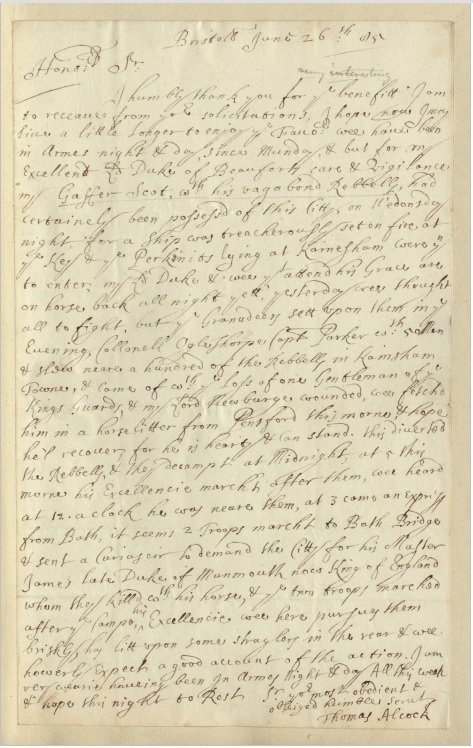 Bristoll June 26th: 85
Honord Sr.
very interesting
I humbly thank you for ye benefitt I am
to receave from yor solicitations, I hope now I may
live a little longer to enjoy ye favor. wee have been
in Armes night & day, since Munday, & but for my
Excellent Ld Duke of Beauforts care & Vigilance
my Gaffer Scot, wth his vagabond Rebbells, had
certainely been possessd of this Citty, on Wedensday
night. for a Ship was treacherously set on fire, at
ye Key & ye Perkinites lying at Kainesham were
to enter, my Ld Duke & wee yt attend his Grace are
on horse back all night yett, yesterday wee thought
all to fight, but ye Granadeers sett upon them in ye
Evening, Collonell Oglethorpe Capt Parker wth 5 Men
& slew neare a hundred of the Rebbells in Kainsham
Towne, & came of wth ye loss of one Gentleman of ye
Kings Guards, & my Lord Newburge wounded, wee fetchd
him in a horse litter from Pensford this morne & hope
he'l recover, for he is hearty & can stand. this diverted
the Rebbells, & they decampt at Midnight, at 5 this
morne his Excellencie marcht, after them, wee heard
at 12. a clock he was neare them, at 3 came an Express
from Bath, it seems 2 Troops marcht to Bath Bridge
& sent a Curiaseir to demand the Citty for his Master
James late Duke of Munmouth now King of England
whom they killd wth his horse, & ye two troops marched
after ye campe, his Excellencie wee here pursues them
briskly, has litt upon some straglers in the rear & wee
howerly Expect a good account of the action. I am
very wearie haveing been in Armes night & day All this week
& hope this night to Rest
Sr yor most obedient &
obliged humble Servt
Thomas Alcock